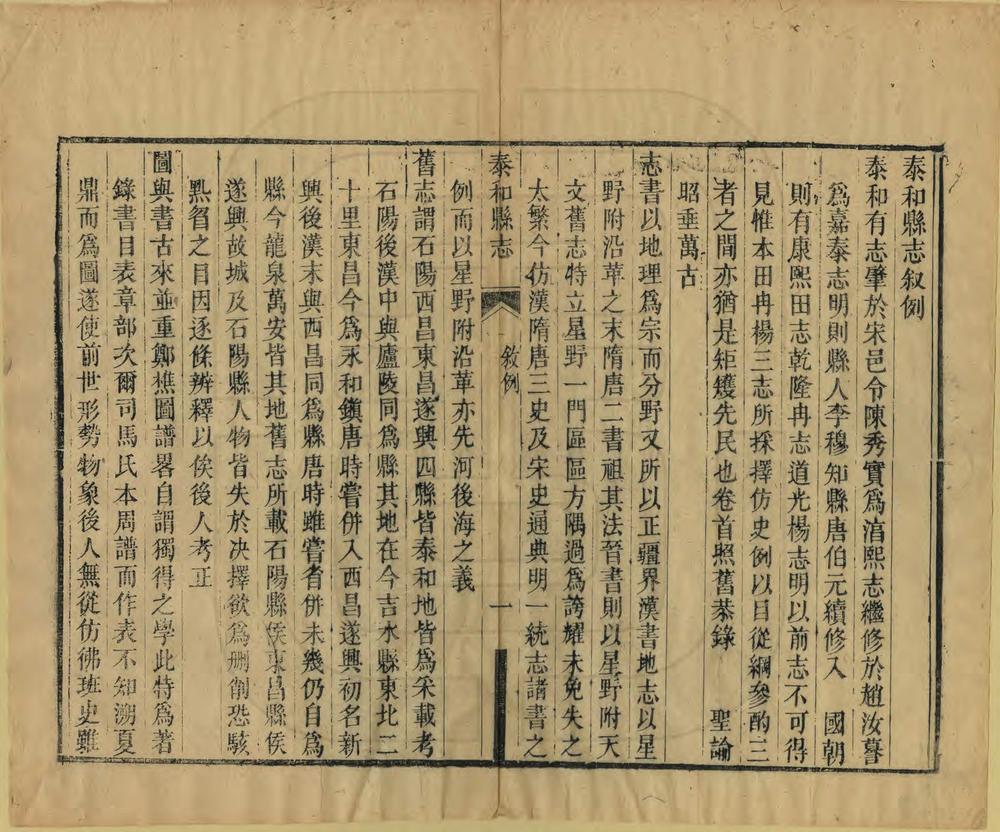 泰和縣志叙例
泰和有志肇於宋邑令陳秀實爲淯熙志繼修於趙汝謩
爲嘉泰志明則縣人李穆知縣唐伯元續修入　國朝
則有康熙田志乾隆冉志道光楊志明以前志不可得
見惟本田冉楊三志所採擇仿史例以目從綱參酌三
者之間亦猶是矩矱先民也卷首照舊恭錄　聖諭
昭垂萬古
志書以地理爲宗而分野又所以正疆界漢書地志以星
野附沿革之末隋唐二書祖其法晉書則以星野附天
文舊志特立星野一門區區方隅過爲誇耀未免失之
太繁今仿漢隋唐三史及宋史通典明一統志諸書之
泰和縣志
敘例
一
例而以星野附沿革亦先河後海之義
舊志謂石陽西昌東昌遂興四縣皆泰和地皆爲采載考
石陽後漢中與廬陵同爲縣其地在今吉水縣東北二
十里東昌今爲永和鎭唐時嘗併入西昌遂興初名新
興後漢末與西昌同爲縣唐時雖嘗省併未幾仍自爲
縣今龍泉萬安皆其地舊志所載石陽縣侯東昌縣侯
遂興故城及石陽縣人物皆失於决擇欲爲刪削恐駭
㸃習之目因逐條辨釋以俟後人考正
圖與書古來並重鄭樵圖譜畧自謂獨得之學此特爲著
錄書目表章部次爾司馬氏本周譜而作表不知溯夏
鼎而爲圖遂使前世形勢物象後人無從仿彿班史雖